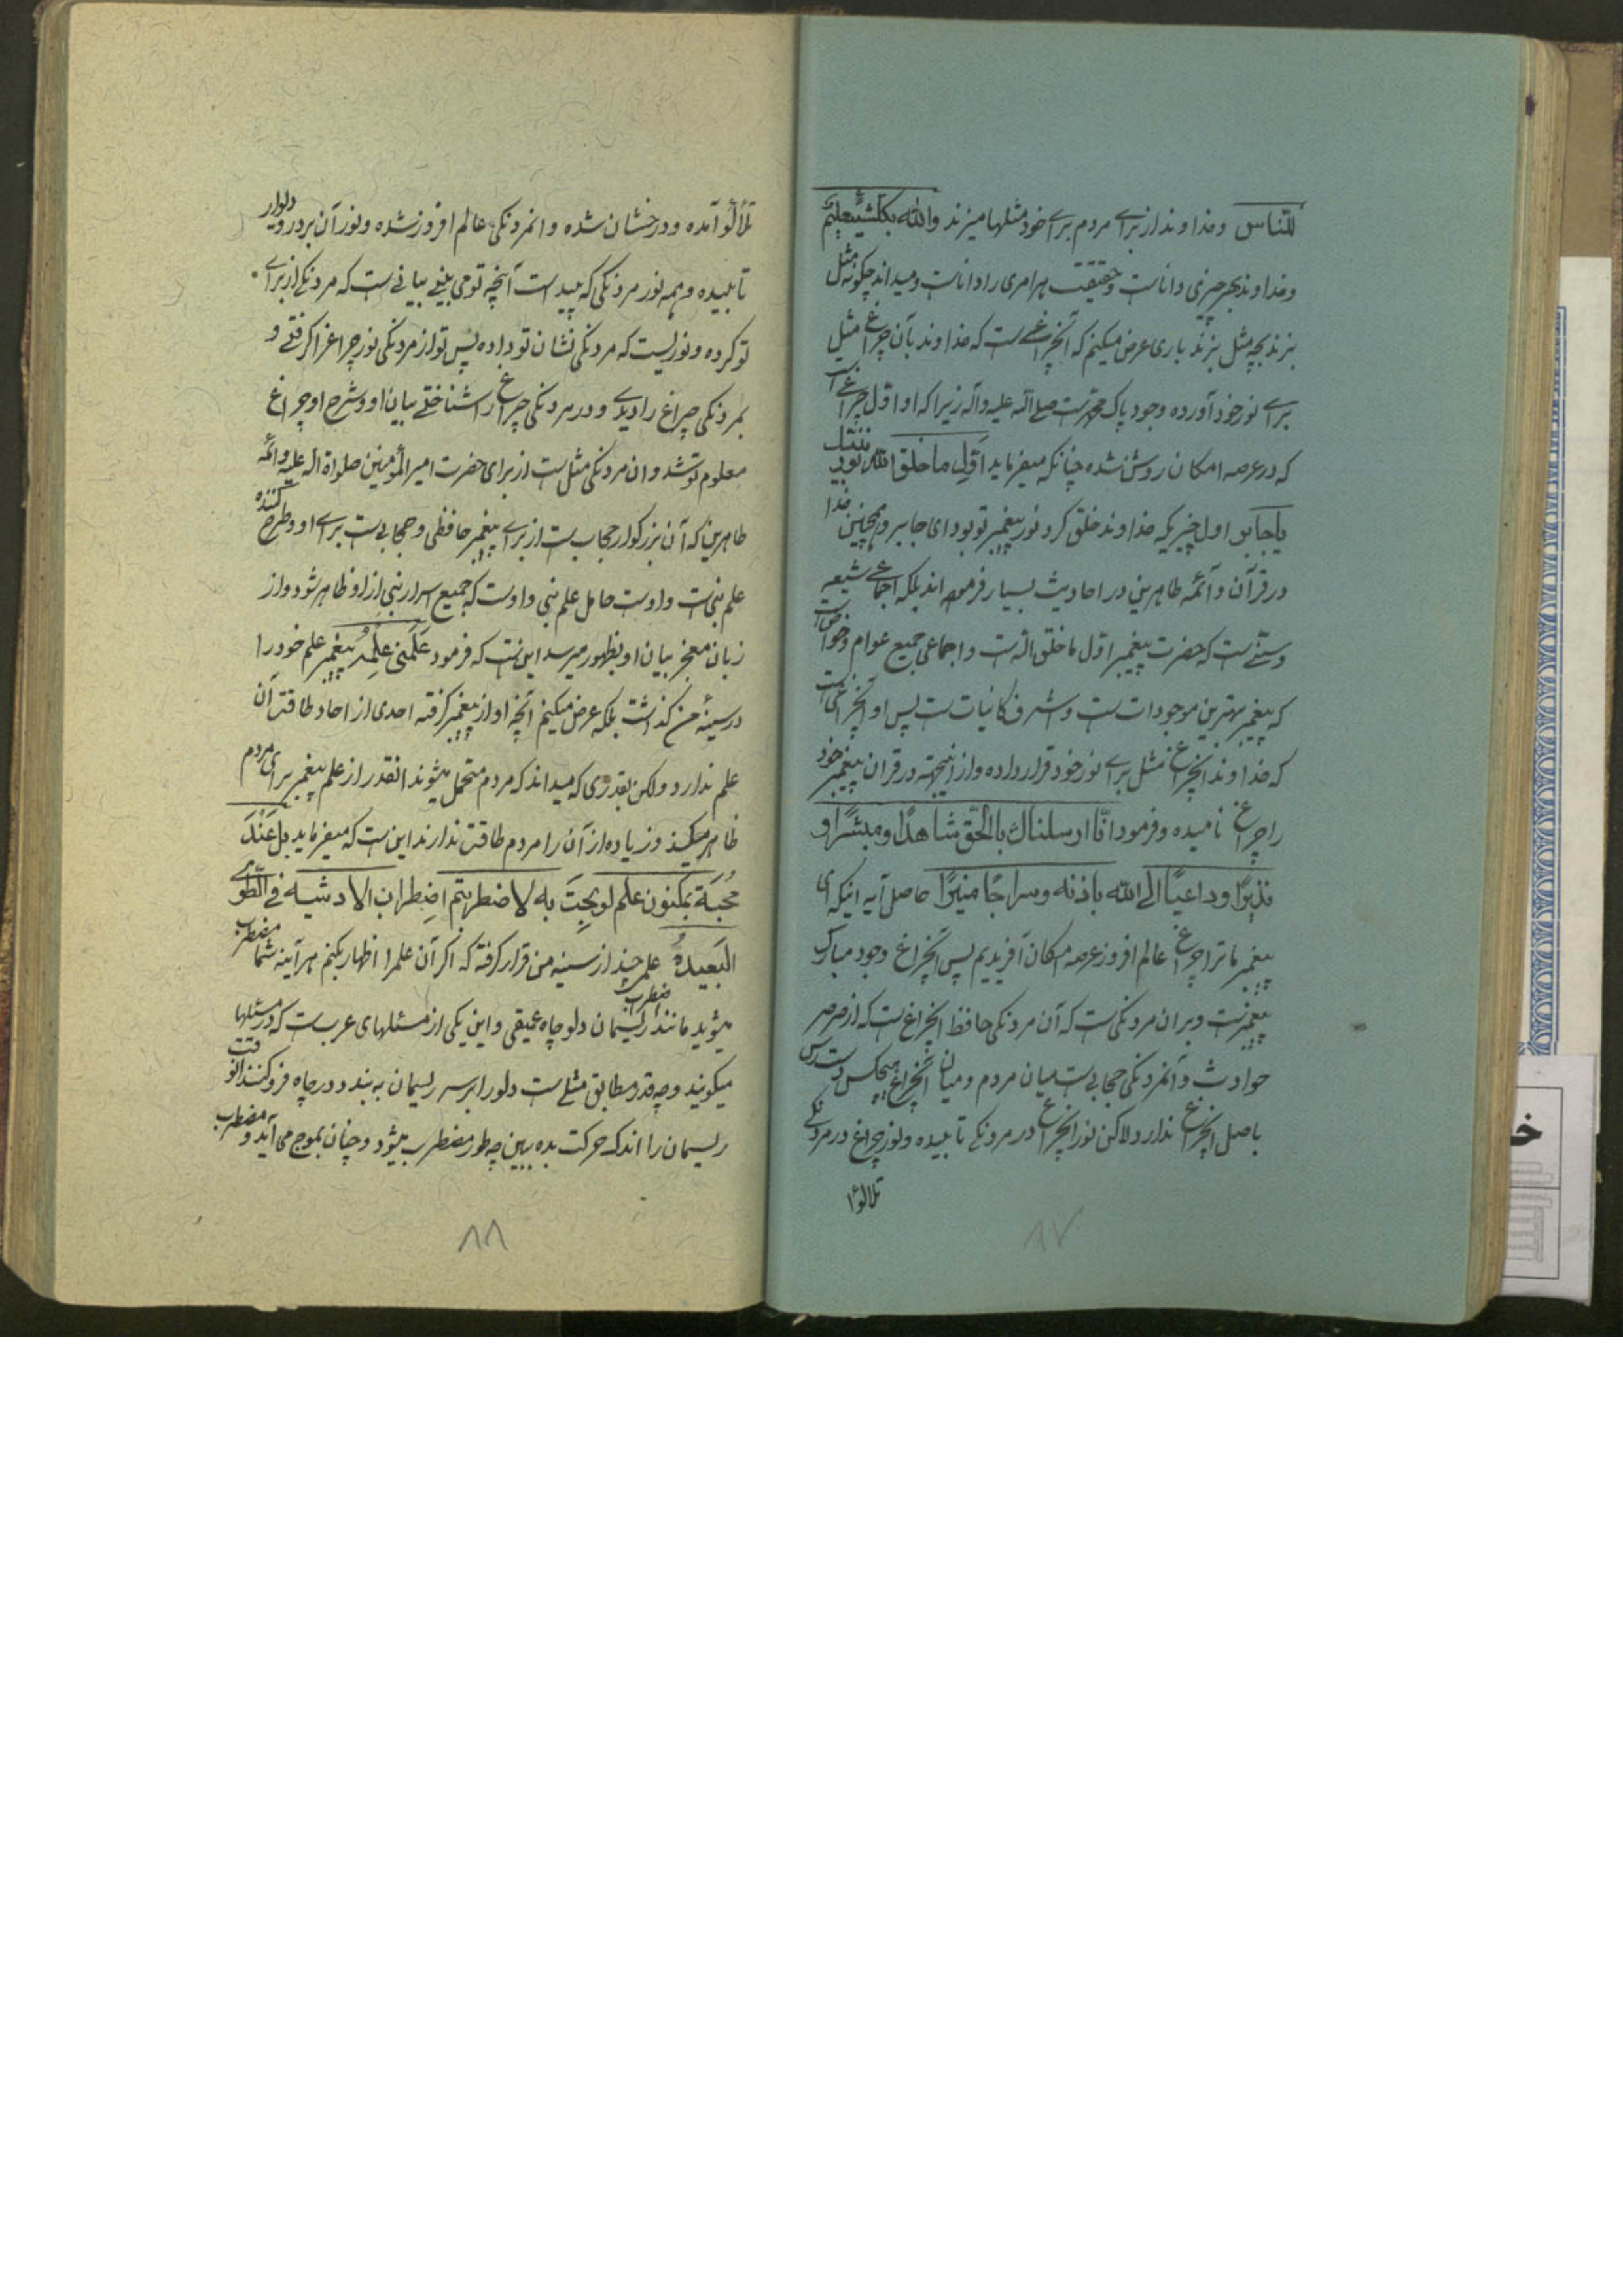 للنّاس وخداوند از برای مردم برای خود مثلها میزند والله بکلّ شیٔ علیم
وخداوند بهر چیزی داناست وحقیقت هر امری را داناست ومیداند چگونه مثل
بزند بچه مثل بزند باری عرض میکنم که آنچراغی است که خداوند بآن چراغ مثل
برای نور خود آورده وجود پاک محمد است صلی الله علیه وآله زیرا که او اول چراغی است
که در عرصه امکان روشن شده چنانکه میفرماید اوّل ما خلق الله نور نبیّک
یا جابر اول چیزیکه خداوند خلق کرد نور پیغمبر تو بود ای جابر وهمچنین خدا
در قرآن وآئمه طاهرین در احادیث بسیار فرموده‌اند بلکه اجماعی شیعه
وسنّی است که حضرت پیغمبر اوّل ما خلق الله است واجماعی جمیع عوام وخواص است
که پیغمبر بهترین موجودات است واشرف کاینات است پس او آنچراغی است
که خداوند آنچراغ مثل برای نور خود قرار داده واز اینجهة در قران پیغمبر خود
را چراغ نامیده وفرمود انّا ارسلناک بالحّق شاهدًا ومبشّرًا و
نذیرًا وداعیًا الی الله باذنه وسراجًا منیرًا حاصل آیه اینکه ای
پیغمبر ما ترا چراغ عالم افروز عرصه امکان آفریدیم پس آنچراغ وجود مبارک
پیغمبر است وبران مردنگی است که آن مردنگی حافظ آنچراغ است که از صرصر
حوادث وآنمردنگی حجابی است میان مردم ومیان آنچراغ هیچکس دست رس
باصل آنچراغ ندارد ولاکن نور آنچراغ در مردنگی تابیده ونور چراغ در مردنگی
تلالؤ
۸۷
تلألؤ آمده ودرخشان شده وانمردنگی عالم افروز شده ونور آن بر در ودیوار
تابیده وهمه نور مردنگی که پیداست آنچه تو می بینی بیانی است که مردنگی از برای
تو کرده ونوریست که مردنگی نشان تو داده پس تو از مردنگی نور چراغ را گرفتی و
بمردنگی چراغ را دیدی ودر مردنگی چراغ را شناختی بیان او وشرح او چراغ
معلوم تو شد وان مردنگی مثل است از برای حضرت امیرالمؤمنین صلواة الله علیه وائمّه
طاهرین که آن بزرگوار حجاب است از برای پیغمبر حافظی وحجابی است برای او وطرح کننده
علم نبی است واوست حامل علم نبی واوست که جمیع اسرار نبی از او ظاهر شود واز
زبان معجز بیان او بظهور میرسد این است که فرمود عَلَّمَنی عِلْمَهُ پیغمبر علم خود را
در سینهٔ من گذاشت بلکه عرض میکنم آنچه او از پیغمبر گرفته احدی از احاد طاقت آن
علم ندارد ولکن بقدری که میداند که مردم متحمل میشوند انقدر از علم پیغمبر برای مردم
ظاهر میکند وزیاده از آن را مردم طاقت ندارند این است که میفرماید بل عندک
بمکنون علم لو بحت به لاضطربتم اضطراب الارشیة فی الطّوی
البعیدة علمی چند از سینه من قرار گرفته که اگر آن علم را اظهار بکنم هرآینه شما مضطرب
میشوید مانند اضطراب ریسمان دلو چاه عمیقی واین یکی از مثلهای عرب است که در مثلها
میگویند وچه قدر مطابق مثلی است دلو را بر سر ریسمان به بندد ودر چاه فرو کنند انوقت
ریسمان را اندک حرکت بده ببین چه طور مضطرب میشود وچنان بموج می آید ومضطرب
۸۸